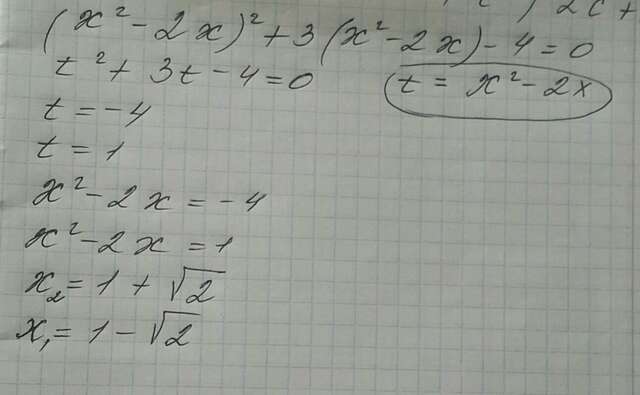 (x² - 2x)² + 3(x² - 2x) - 4 = 0
t² + 3t - 4 = 0 t = x² - 2x
t = -4
t = 1
x² - 2x = -4
x² - 2x = 1
x₂ = 1 + √2
x₁ = 1 - √2